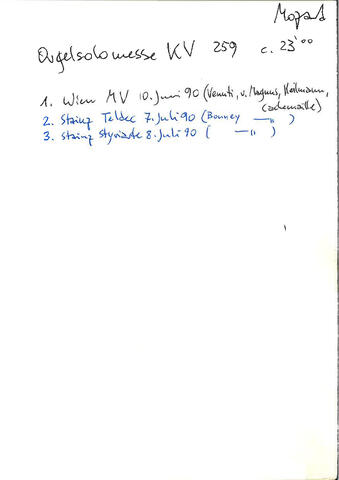 Mozart
Orgelsolomesse KV 259 c. 23'00
1. Wien MV 10. Juni 90 (Venuti, v. Magnus, Heilmann,
Cachemaille)
2. Stainz Teldec 7. Juli 90 (Bonney —"— )
3. Stainz Styriarte 8. Juli 90 ( —"— )